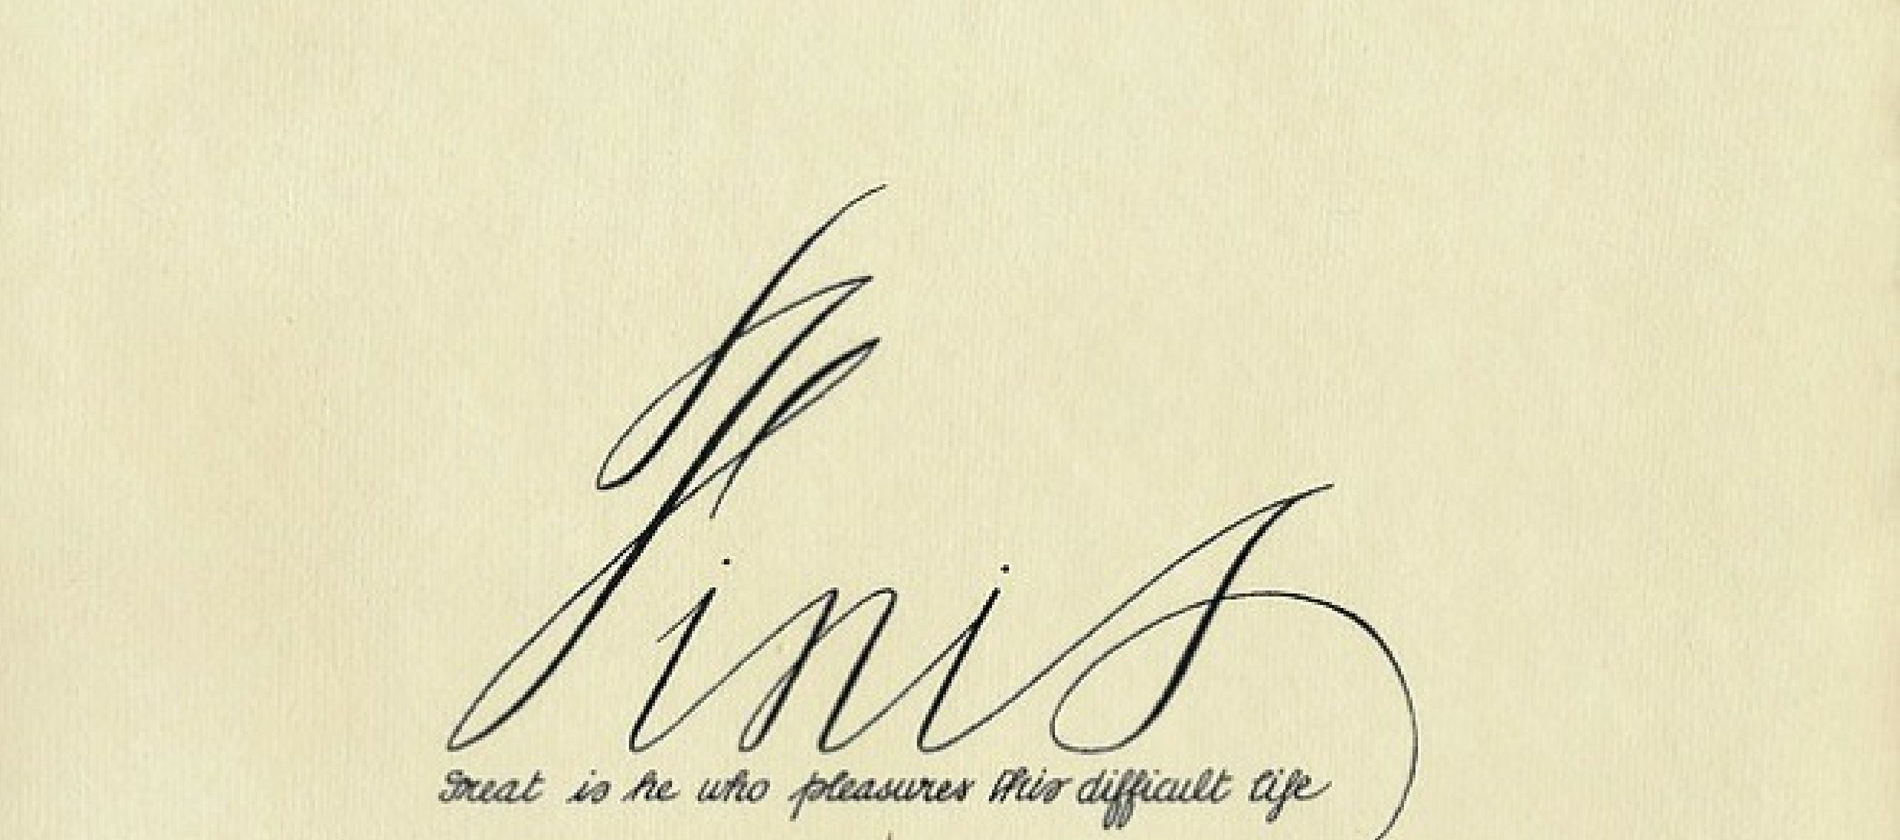 Finis
Great is he who pleasures this difficult life